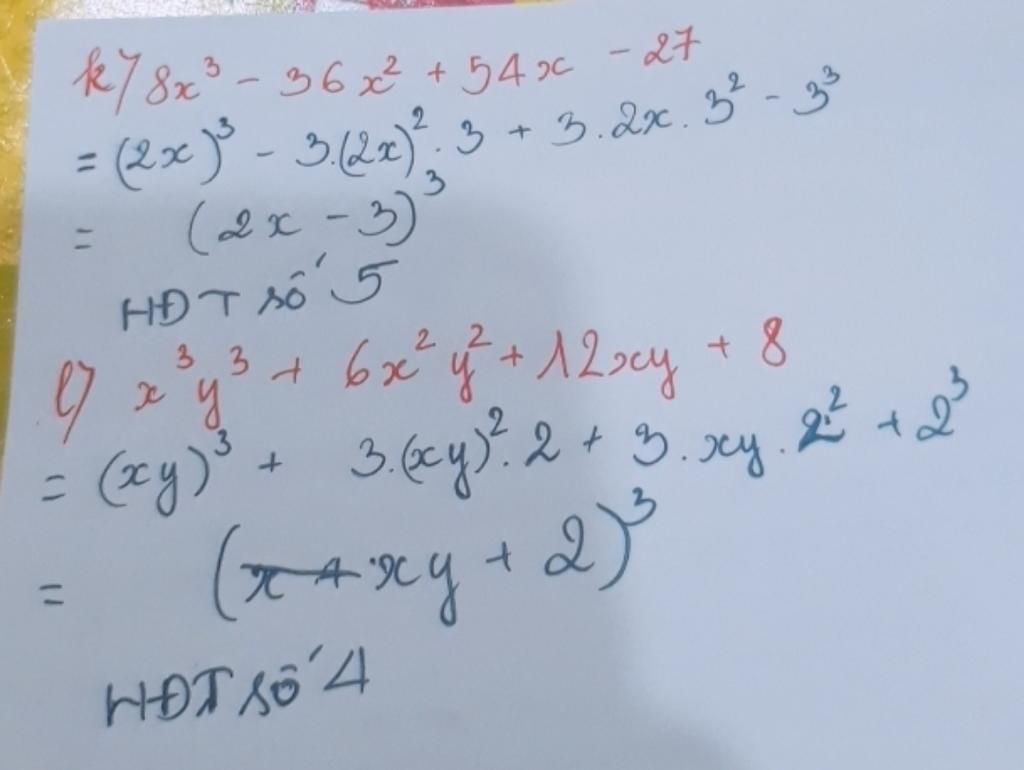 k) 8x³ - 36x² + 54x - 27
= (2x)³ - 3.(2x)².3 + 3.2x.3² - 3³
= (2x - 3)³
HĐT số 5
l) x³y³ + 6x²y² + 12xy + 8
= (xy)³ + 3.(xy)².2 + 3.xy.2² + 2³
= (xy + 2)³
HĐT số 4